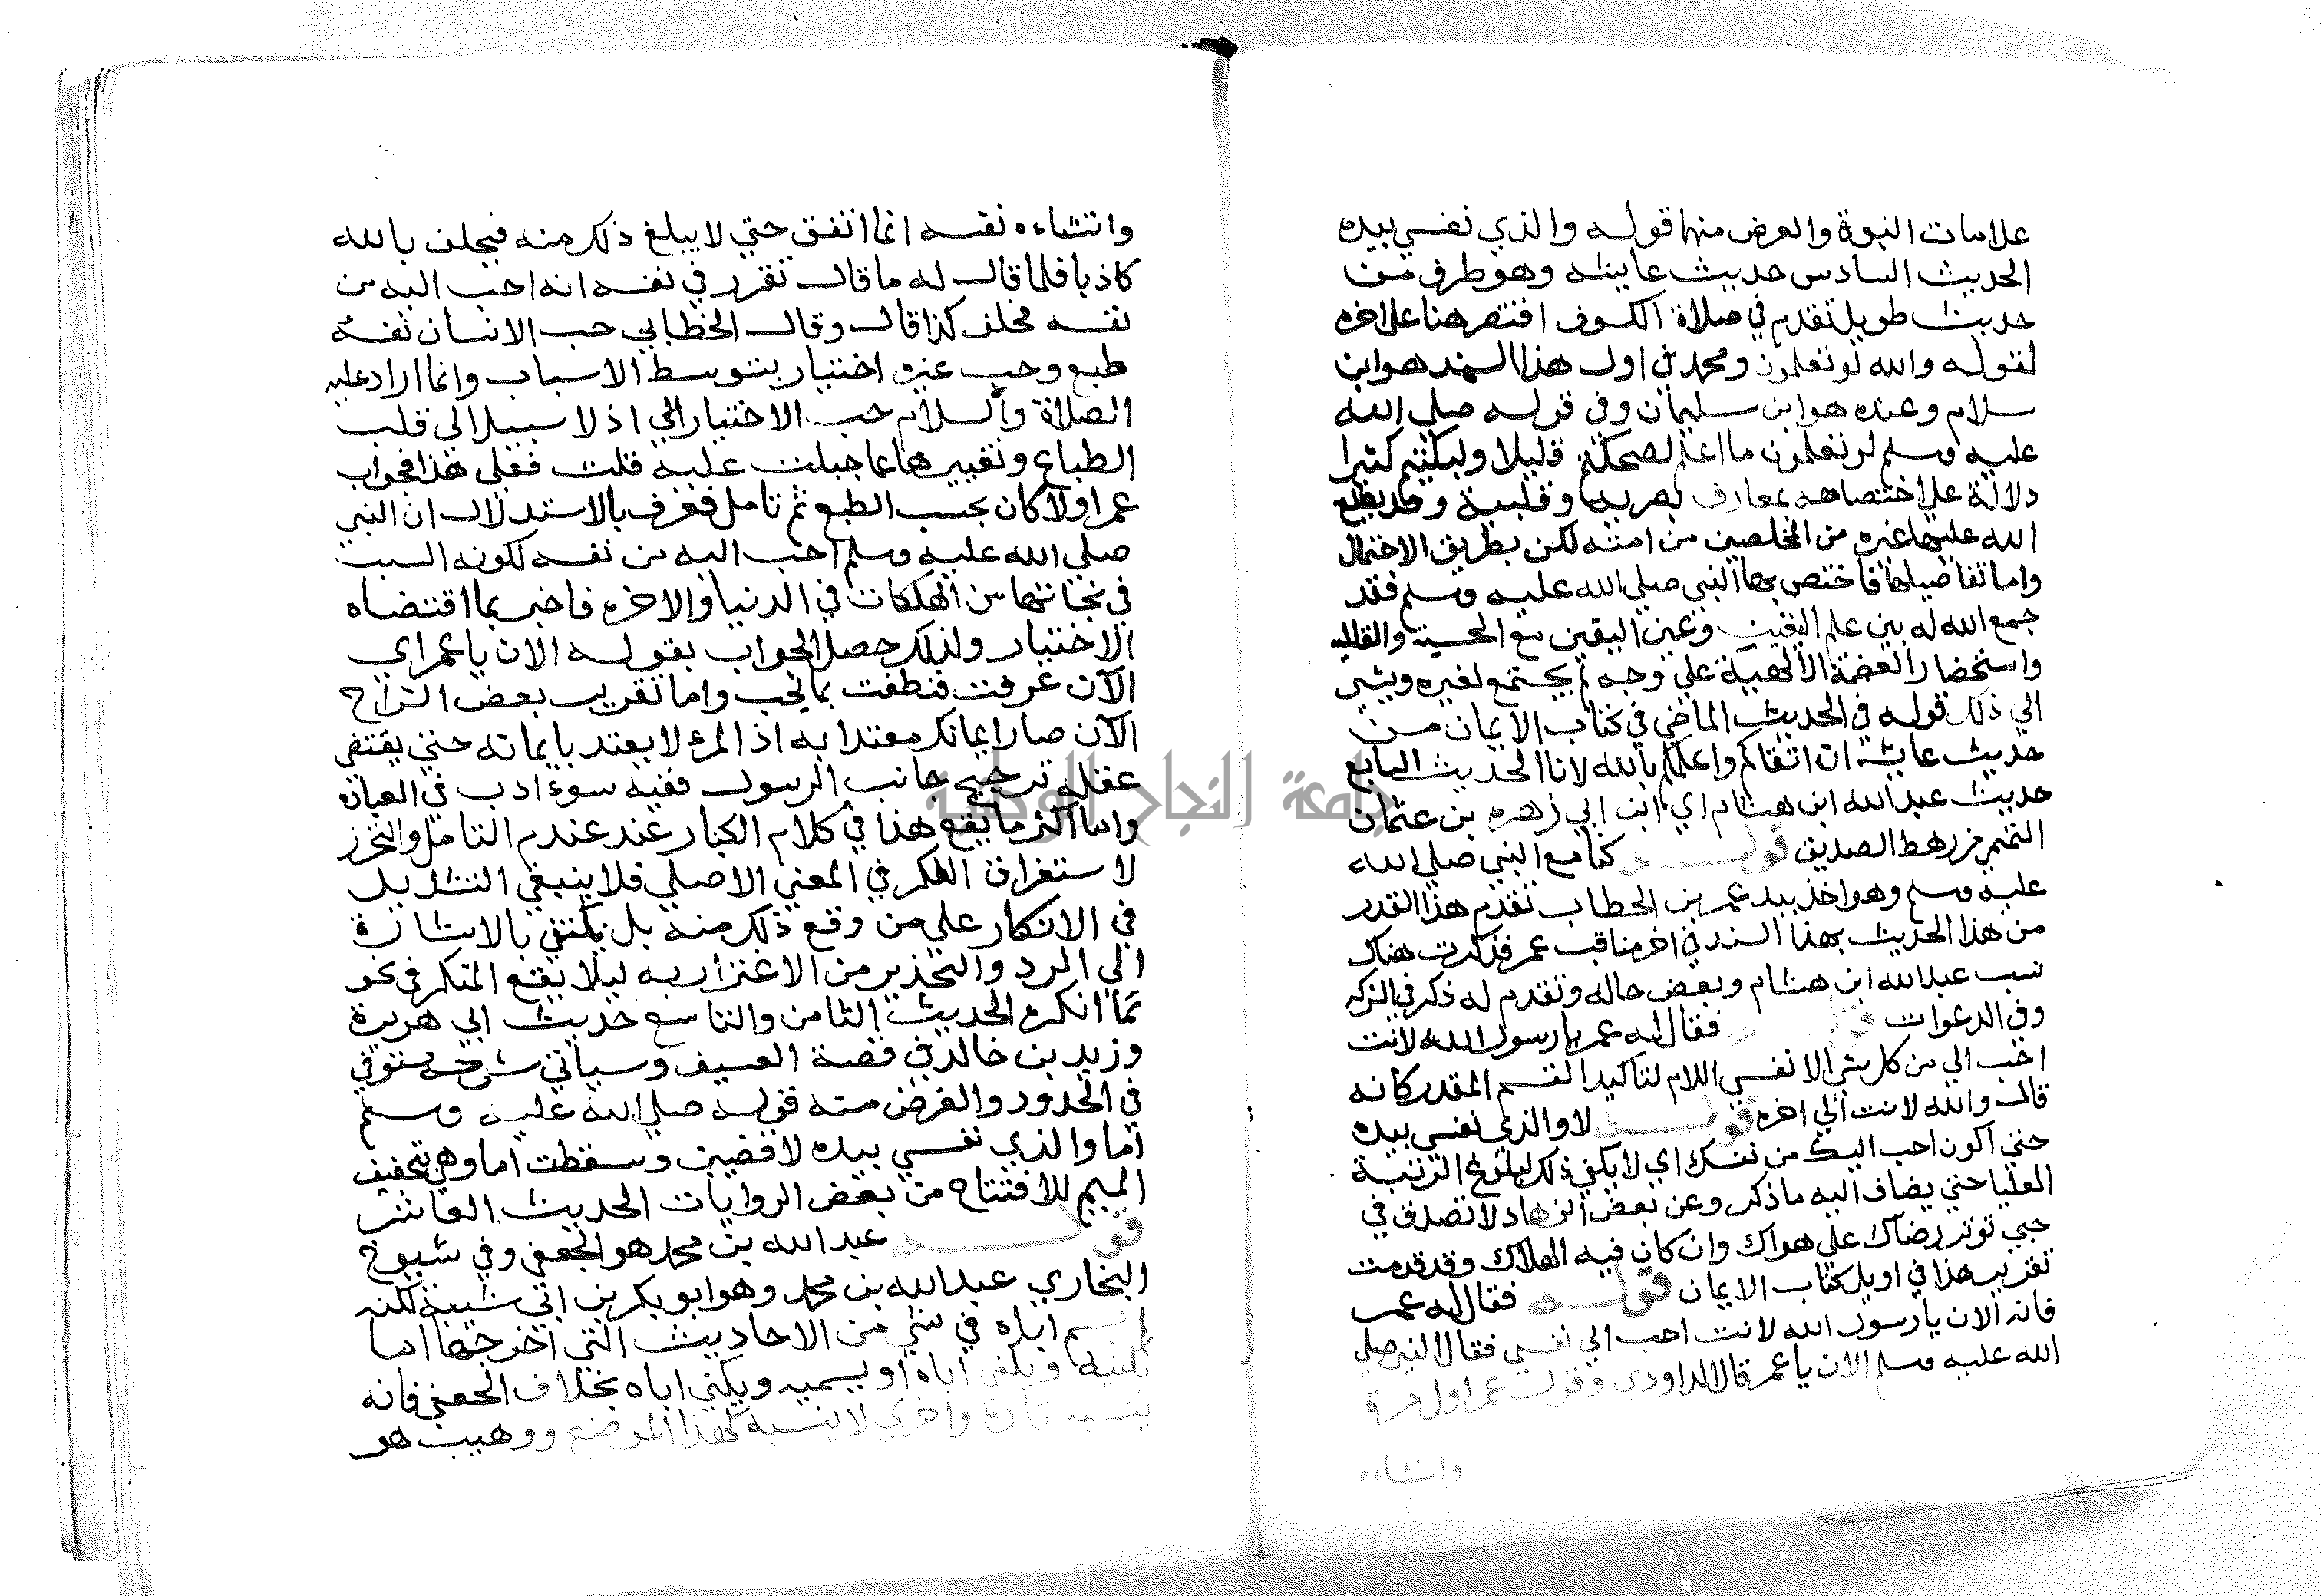 علامات النبوة والغرض منها قوله والذي نفسي بيده
الحديث السادس حديث عايشه وهو طرف من
حديث طويل تقدم في صلاة الكسوف اقتصر هنا على اخره
لقوله والله لو تعلمون ومحمد في اول هذا السند هو ابن
سلام وعبده هو ابن سليمان وفي قوله صلي الله
عليه وسلم لو تعلمون ما اعلم لضحكتم قليلا ولبكيتم كثيرا
دلالة على اختصاصه بمعارف بصريه وقلبية وقد يطلع
الله عليها غيره من المخلصين من امته لكن بطريق الاجمال
واما تفاصيلها فاختص بها النبي صلي الله عليه وسلم فقد
جمع الله له بين علم اليقين وعين اليقين مع الخشية القلبيه
واستحضار العظمة الالهية علي وجه لم يجتمع لغيره ويشير
الي ذلك قوله في الحديث الماضي في كتاب الايمان من
حديث عايشه ان اتقاكم واعلمكم بالله لانا الحديث السابع
حديث عبد الله ابن هشام اي ابن ابي زهره بن عثمان
التيمي من رهط الصديق قوله كنا مع النبي صلي الله
عليه وسلم وهو اخذ بيد عمر بن الخطاب تقدم هذا القدر
من هذا الحديث بهذا السند في اخر مناقب عمر فذكرت هناك
نسب عبد الله ابن هشام وبعض حاله وتقدم له ذكر في الشركه
وفي الدعوات قوله فقال له عمر يا رسول الله لانت
احب الي من كل شي الا نفسي اللام لتاكيد القسم المقدر كانه
قال والله لانت الي اخره قوله لا والذي نفسي بيده
حتي اكون احب اليك من نفسك اي لا يكفي ذلك لبلوغ الرتبة
العليا حتي يضاف اليه ما ذكر وعن بعض الزهاد لا تصدق في
حبي توثر رضاك علي هواك وان كان فيه الهلاك وقد قدمت
تقرير هذا في اوايل كتاب الايمان قوله فقال له عمر
فانه الان يا رسول الله لانت احب الي نفسي فقال النبي صلي
الله عليه وسلم الان يا عمر قال الداودي وقوف عمر اول مرة
واستثناءه
واستثناءه نفسه انما اتفق حتي لا يبلغ ذلك منه فيحلف بالله
كاذبا فلما قال له ما قال تقرر في نفسه انه احب اليه من
نفسه فحلف كذا قال وقال الخطابي حب الانسان نفسه
طبع وحب غيره اختيار بتوسط الاسباب وانما اراد عليه
الصلاة والسلام حب الاختيار الي اذ لا سبيل الي قلب
الطباع وتغييرها عما جبلت عليه قلت فعلي هذا فجواب
عمر اولا كان بحسب الطبع ثم تامل فعرف بالاستدلال ان النبي
صلي الله عليه وسلم احب اليه من نفسه لكونه السبب
في نجاتها من الهلكات في الدنيا والاخره فاخبر بما اقتضاه
الاختيار ولذلك حصل الجواب بقوله الان يا عمر اي
الآن عرفت فنطقت بما يجب واما تقرير بعض الشراح
الآن صار ايمانك معتدا به اذ المرء لا يعتد بايمانه حتي يقتضي
عقله ترجيح جانب الرسول ففيه سوء ادب في العباره
وما اكثر ما يقع هذا في كلام الكبار عند عدم التامل والتحرز
لاستغراق الفكر في المعني الاصلي فلا ينبغي التشديد
في الانكار علي من وقع ذلك منه بل يكتفي بالاشارة
الي الرد والتحذير من الاغترار به ليلا يقع المنكر في نحو
مما انكره الحديث الثامن والتاسع حديث ابي هريرة
وزيد بن خالد في قصة العسيف وسياتي شرحه مستوفي
في الحدود والغرض منه قوله صلي الله عليه وسلم
اما والذي نفسي بيده لاقضين وسقطت اما وهي بتخفيف
الميم للافتتاح من بعض الروايات الحديث العاشر
قوله عبد الله بن محمد هو الجعفي وفي شيوخ
البخاري عبد الله بن محمد وهو ابو بكر بن ابي شيبة لكنه
لم يسم اباه في شي من الاحاديث التي اخرجها اما
يكنيه ويكني اباه او يسميه ويكني اباه بخلاف الجعفي فانه
ينسبه تارة واخري لا ينسبه كهذا الموضع ووهيب هو
جامعة النجاح الوطنية